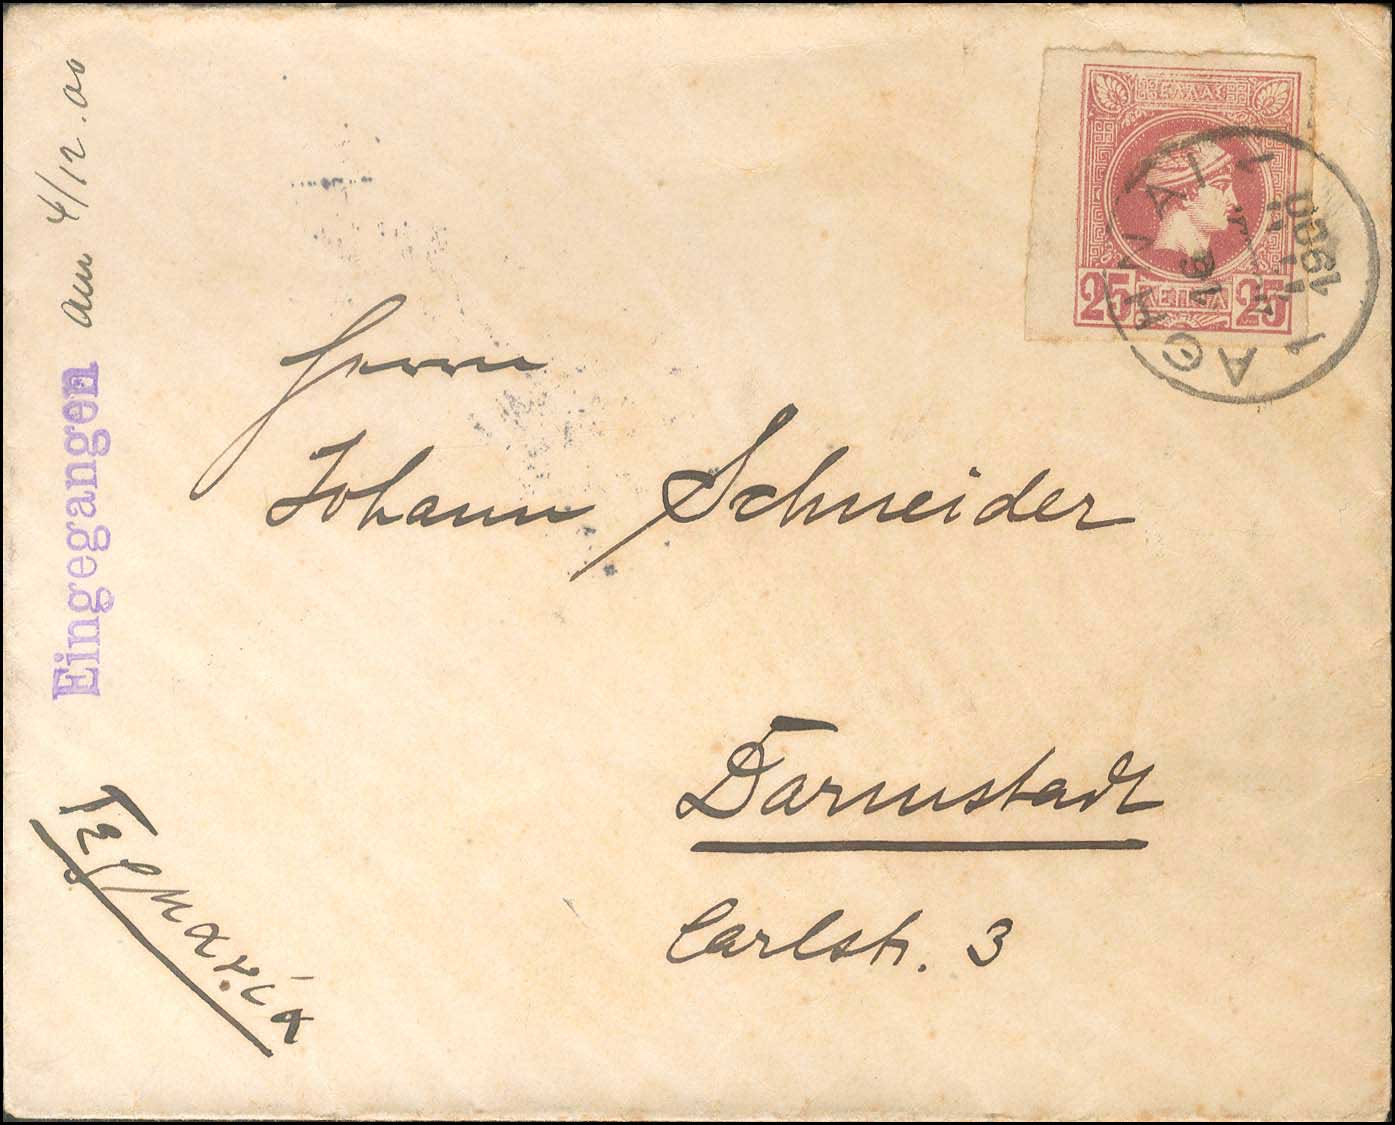 Eingegangen am 4/12.00
ΕΛΛΑΣ
25 ΛΕΠΤΑ 25
ΑΘΗΝΑΙ 1
16
1900
Herrn
Johann Schneider
Darmstadt
Carlstr. 3
Γερμανία